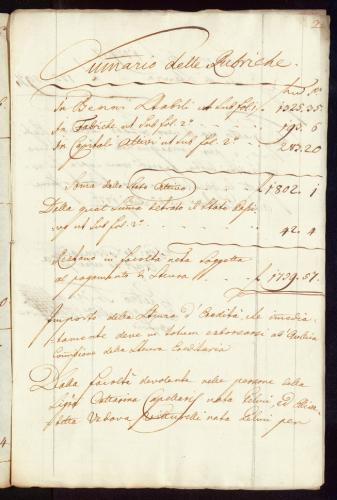 2
Sumario delle Rubriche.
In Benni Stabili ut Sub fol: 1325.35
In Fabriche ut Sub fol. 2º 195. 6
In Capitali Attivi ut Sub fol. 2º 273.20
Suma dello Stato Attivo f 1802. 1
Dalla qual suma detrato il Stato Passi-
vo ut Sub fol. 2º 42. 4
Restano in facoltà neta soggetta
al pagamento di f 1759.57
Importo della d' Eredità, che imedia-
tamente deve in totum esborsarsi al
Comissione della Ereditaria
Dalla facoltà devolente nelle persone della
Sigra Cattarina nata Pelini, ed
Vedova nata Pelini per